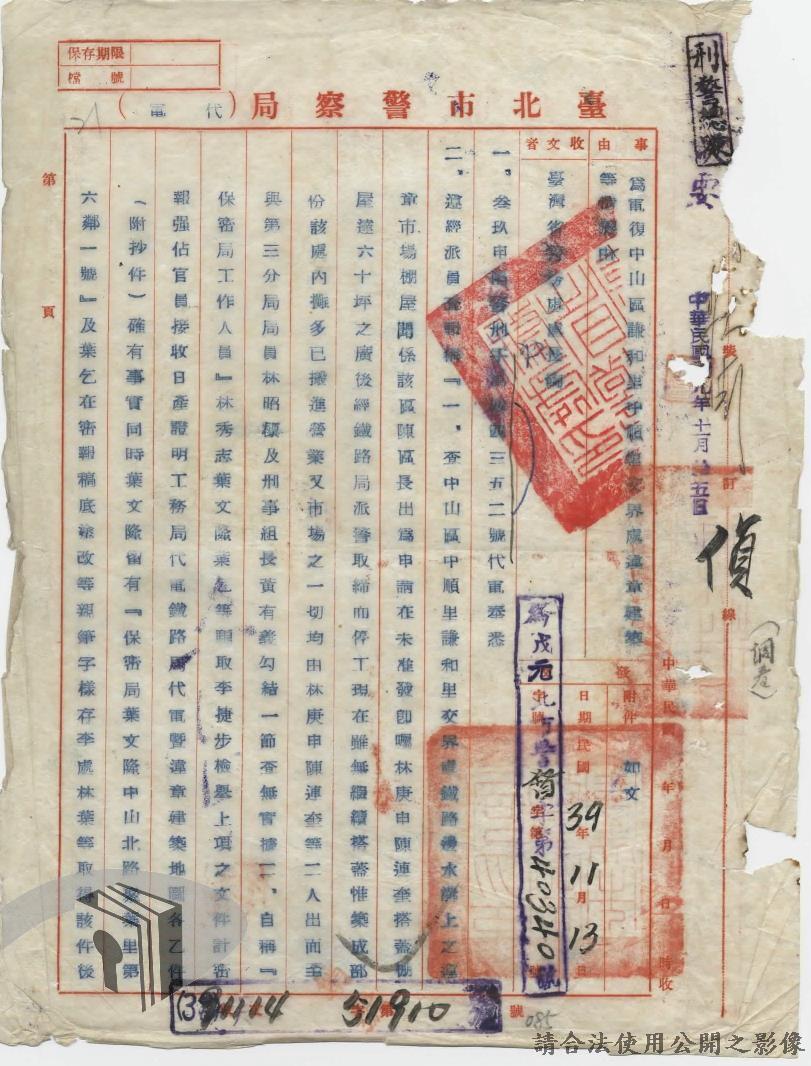 保存期限
檔號
臺北市警察局（代電）
刑警總隊
事由
為電復中山區謙和里中順里交界處違章建築
等情報由
收文者
臺灣省警務處處長
附件 如文
日期 民國39年11月13日
北市警 字第40340號
中華民國 年 月 日 時收
中華民國 九年十一月 五日
裝
訂
線
偵
（調卷）
一、叁玖申 警刑 三五二號代電奉悉
二、遵經派員查報稱『一、查中山區中順里謙和里交界處鐵路邊水溝上之違
章市場棚屋關係該區陳區長出為申請在未准發卽囑林庚申陳連奎搭蓋棚
屋達六十坪之廣後經鐵路局派警取締而停工現在雖無繼續搭蓋惟築成部
份該處內攤多已搬進營業又市場之一切均由林庚申陳連奎等二人出面至
與第三分局局員林昭 及刑事組長黃有義勾結一節查無實據二、自稱『
保密局工作人員』林秀志葉文隆葉乞等 取李捷步檢舉上項之文件計密
報强佔官員接收日產證明工務局代電鐵路局代電暨違章建築地圖各乙件
（附抄件）確有事實同時葉文隆留有『保密局葉文隆中山北路聚葉里第
六鄰一號』及葉乞在密報稿底塗改等親筆字樣存李處林葉等取得該件後
第 頁
(39)1114 51910
號
085
請合法使用公開之影像